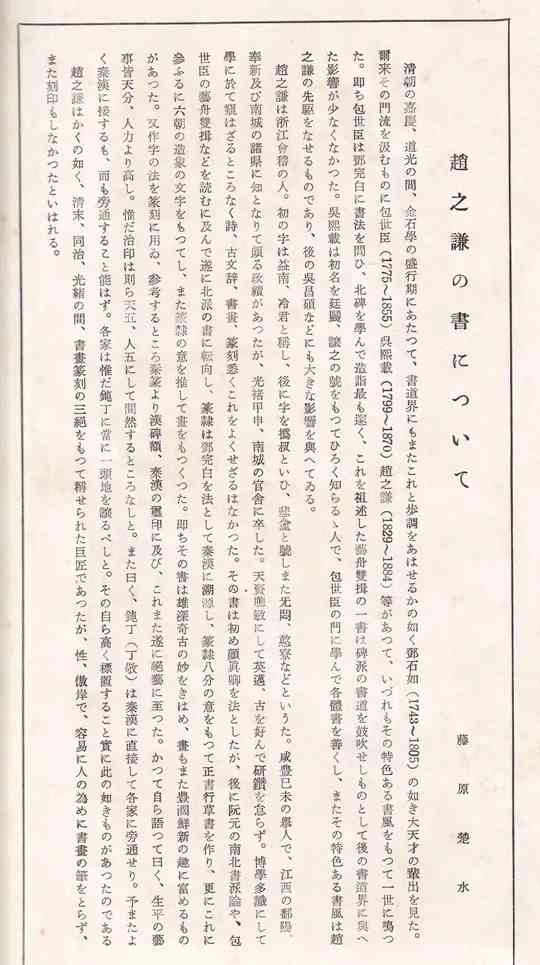 趙之謙の書について
藤原楚水
清朝の嘉慶、道光の間、金石學の盛行期にあたつて、書道界にもまたこれと歩調をあはせるかの如く鄧石如（1743〜1805）の如き大天才の輩出を見た。
爾来その門流を汲むものに包世臣（1775〜1855）吳熙載（1799〜1870）趙之謙（1829〜1884）等があつて、いづれもその特色ある書風をもつて一世に鳴つ
た。即ち包世臣は鄧完白に書法を問ひ、北碑を學んで造詣最も深く、これを祖述した藝舟雙楫の一書は碑派の書道を鼓吹せしものとして後の書道界に與へ
た影響が少なくなかつた。吳熙載は初名を廷颺、讓之の號をもつてひろく知らるゝ人で、包世臣の門に學んで各體書を善くし、またその特色ある書風は趙
之謙の先駆をなせるものであり、後の吳昌碩などにも大きな影響を與へてゐる。
趙之謙は浙江會稽の人。初の字は益甫、冷君と稱し、後に字を撝叔といひ、悲盫と號しまた无悶、憨寮などというた。咸豊己未の擧人で、江西の鄱陽、
奉新及び南城の諸県に知となりて頗る政績があつたが、光緒甲申、南城の官舎に卒した。天資穎敏にして英邁、古を好んで研鑽を怠らず。博學多識にして
學に於て窺はざるところなく詩、古文辞、書畫、篆刻悉くこれをよくせざるはなかつた。その書は初め顔眞卿を法としたが、後に阮元の南北書派論や、包
世臣の藝舟雙楫などを読むに及んで遂に北派の書に転向し、篆隸は鄧完白を法として秦漢に溯源し、篆隸八分の意をもつて正書行草書を作り、更にこれに
參ふるに六朝の造象の文字をもつてし、また篆隸の意を推して畫をもつくつた。即ちその書は雄深奇古の妙をきはめ、畫もまた豊潤鮮新の趣に富めるもの
があつた。又作字の法を篆刻に用ゐ、参考するところ秦篆より漢碑額、秦漢の璽印に及び、これまた遂に絕藝に至つた。かつて自ら語つて曰く、生平の藝
事皆天分、人力より高し。惟だ治印は則ち天五、人五にして間然するところなしと。また曰く、鈍丁（丁敬）は秦漢に直接して各家に旁通せり。予またよ
く秦漢に接するも、而も旁通すること能はず。各家は惟だ鈍丁に當に一頭地を讓るべしと。その自ら高く標置すること實に此の如きものがあつたのである
趙之謙はかくの如く、清末、同治、光緒の間、書畫篆刻の三絕をもつて稱せられた巨匠であつたが、性、傲岸で、容易に人の為めに書畫の筆をとらず、
また刻印もしなかつたといはれる。